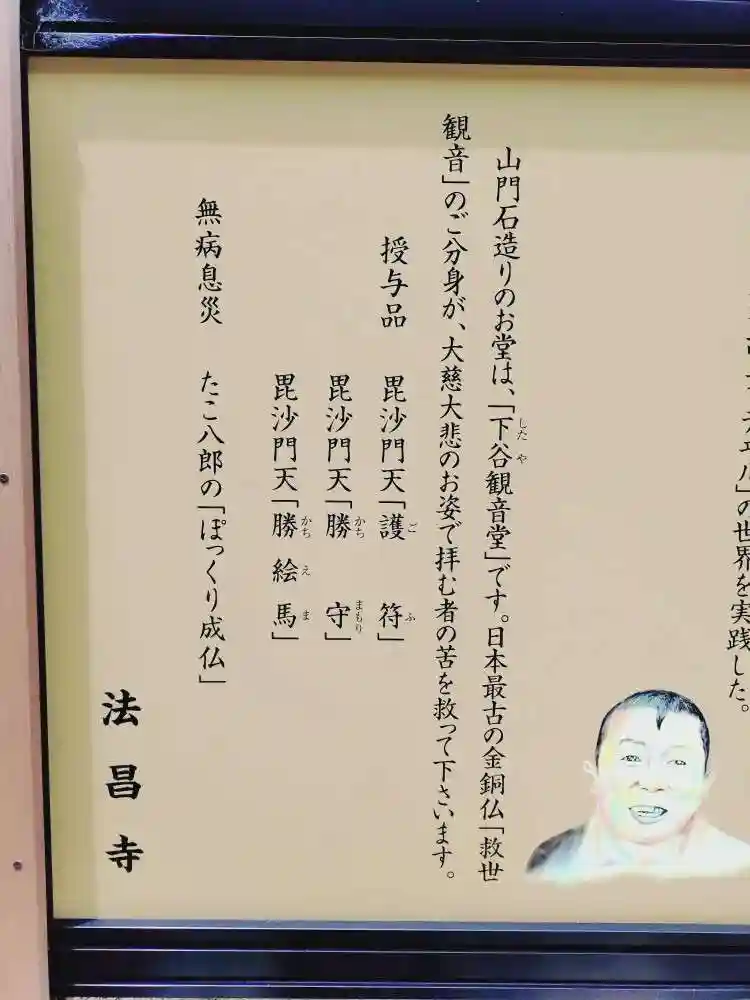 」の世界を実践した。
山門石造りのお堂は、「下谷観音堂」です。日本最古の金銅仏「救世
観音」のご分身が、大慈大悲のお姿で拝む者の苦を救って下さいます。
授与品 毘沙門天「護符」
毘沙門天「勝守」
毘沙門天「勝絵馬」
無病息災 たこ八郎の「ぽっくり成仏」
法昌寺